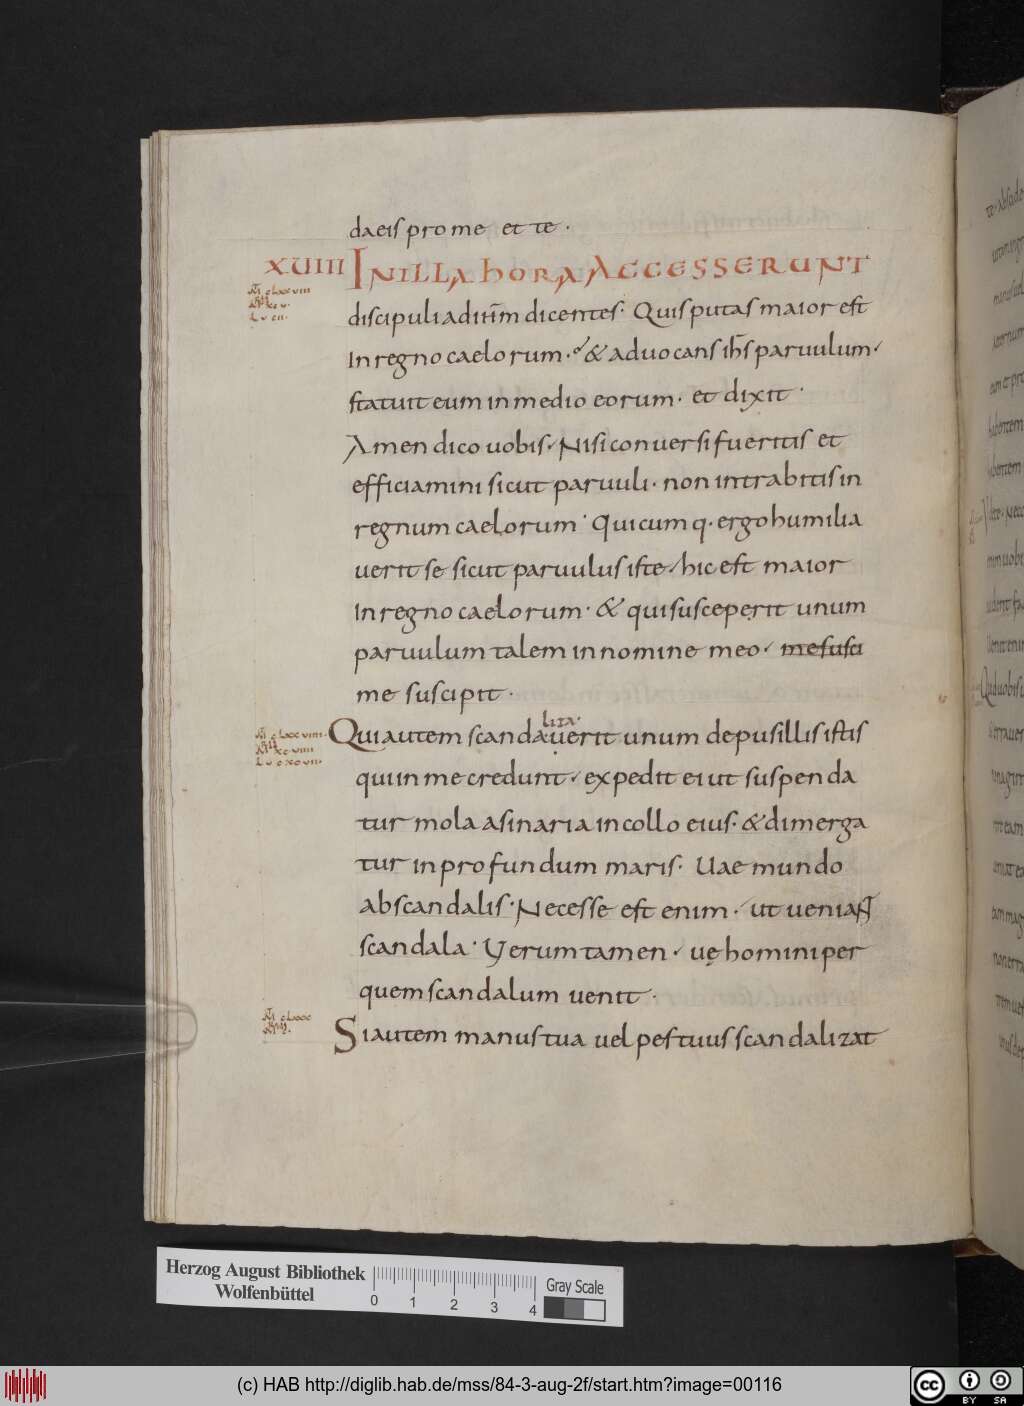 da eis pro me et te ·
XUIIII IN ILLA hORA ACCESSERUNT
discipuli ad ihm dicentes · Quis putas maior est
In regno caelorum · & aduocans ihs paruulum ·
statuit eum in medio eorum · et dixit ·
Amen dico uobis · Nisi conuersi fueritis et
efficiamini sicut paruuli · non intrabitis in
regnum caelorum · Quicumq · ergo humilia
uerit se sicut paruulus iste · hic est maior
In regno caelorum · & qui susceperit unum
paruulum talem in nomine meo · me susci
me suscipit ·
Qui autem scandauerit unum de pusillis istis
liza ·
qui in me credunt · expedit ei ut suspenda
tur mola asinaria in collo eius · & dimerga
tur in profundum maris · Uae mundo
ab scandalis · Necesse est enim · ut ueniant
scandala · Uerum tamen · uę homini per
quem scandalum uenit ·
Si autem manus tua uel pes tuus scandalizat
Herzog August Bibliothek
Wolfenbüttel
0 1 2 3 4
Gray Scale
(c) HAB http://diglib.hab.de/mss/84-3-aug-2f/start.htm?image=00116
cc BY SA